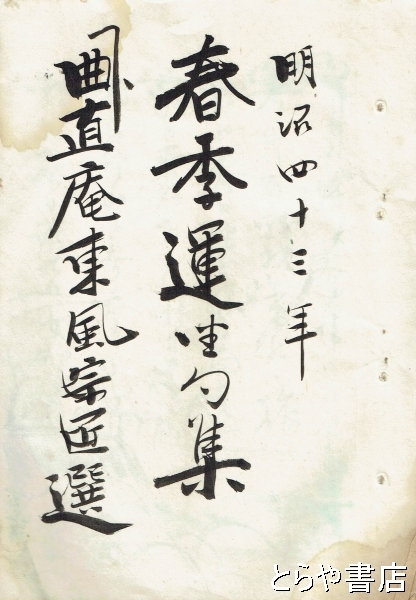 明治四十三年
春季運坐句集
曲直庵東風宗匠選
とらや書店